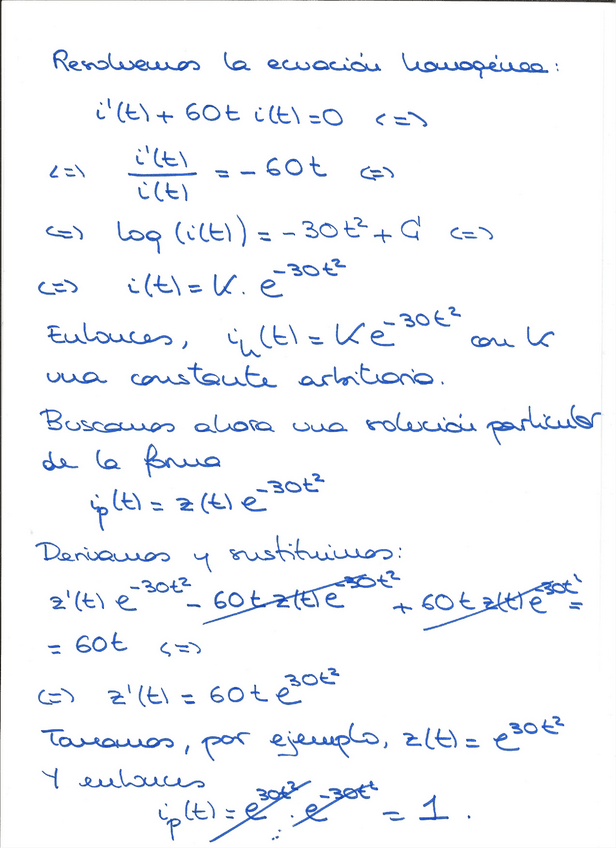 Resolvemos la ecuación homogénea:
i'(t) + 60t i(t) = 0 <=>
<=> i'(t)/i(t) = -60t <=>
<=> log (i(t)) = -30t² + C <=>
<=> i(t) = K. e^-30t²
Entonces, i_h(t) = K e^-30t² con K
una constante arbitraria.
Buscamos ahora una solución particular
de la forma
i_p(t) = z(t) e^-30t²
Derivamos y sustituimos:
z'(t) e^-30t² - 60t z(t) e^-30t² + 60t z(t) e^-30t² =
= 60t <=>
<=> z'(t) = 60t e^30t²
Tomamos, por ejemplo, z(t) = e^30t²
Y entonces
i_p(t) = e^30t² · e^-30t² = 1.